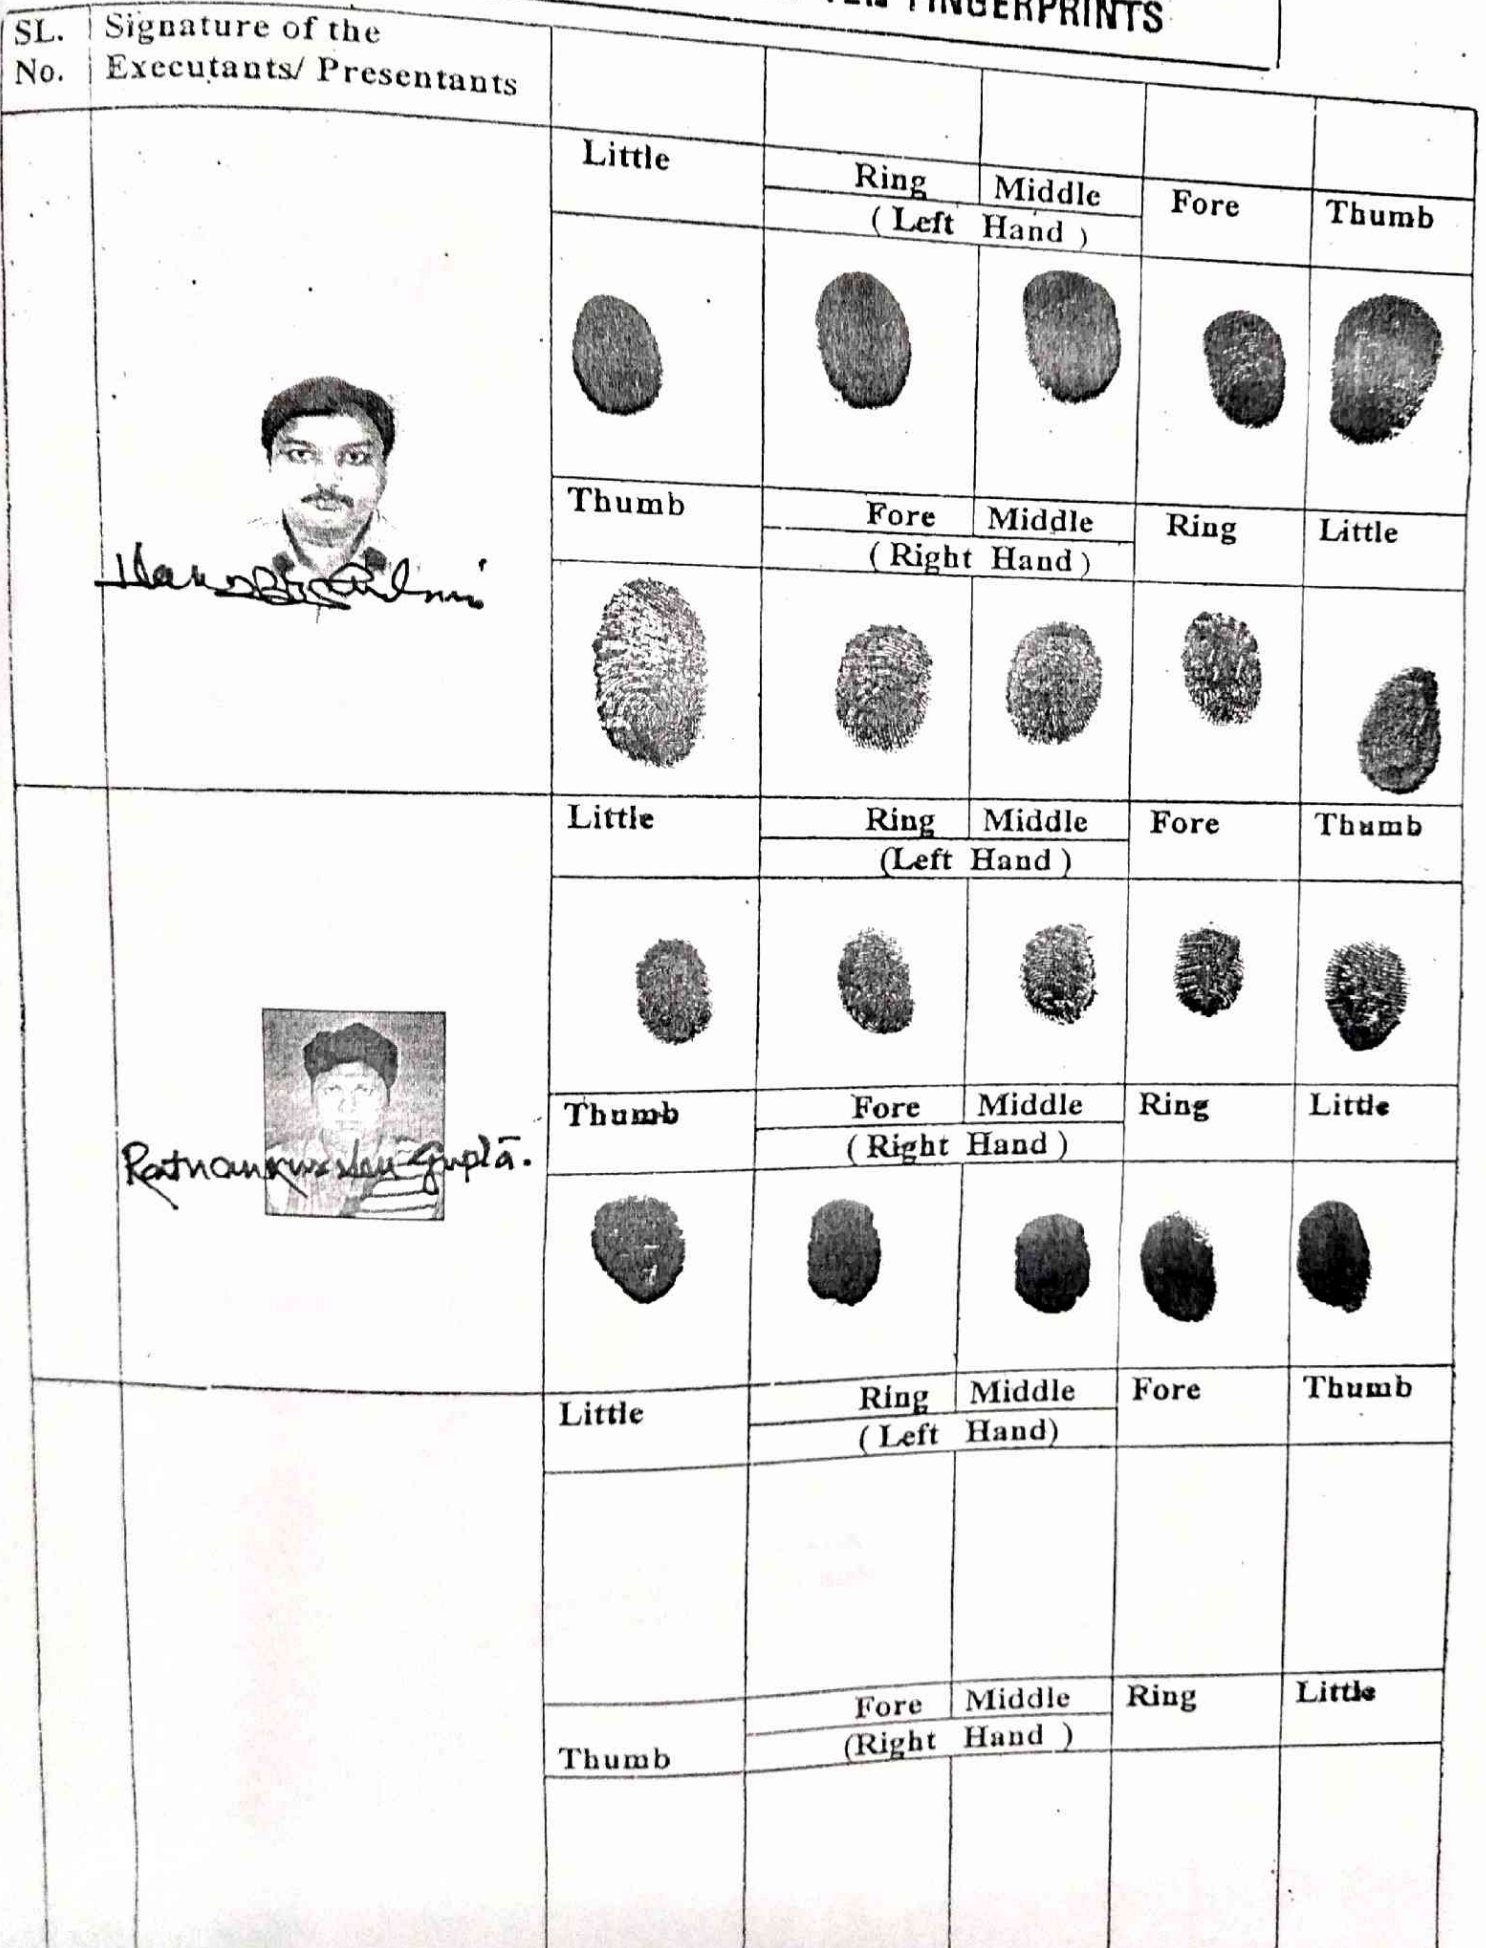 FINGERPRINTS
SL. Signature of the
No. Executants/ Presentants
Little Ring Middle Fore Thumb
( Left Hand )
Thumb Fore Middle Ring Little
( Right Hand )
Little Ring Middle Fore Thumb
(Left Hand )
Thumb Fore Middle Ring Little
( Right Hand )
Gupta.
Little Ring Middle Fore Thumb
( Left Hand)
Thumb Fore Middle Ring Little
(Right Hand )